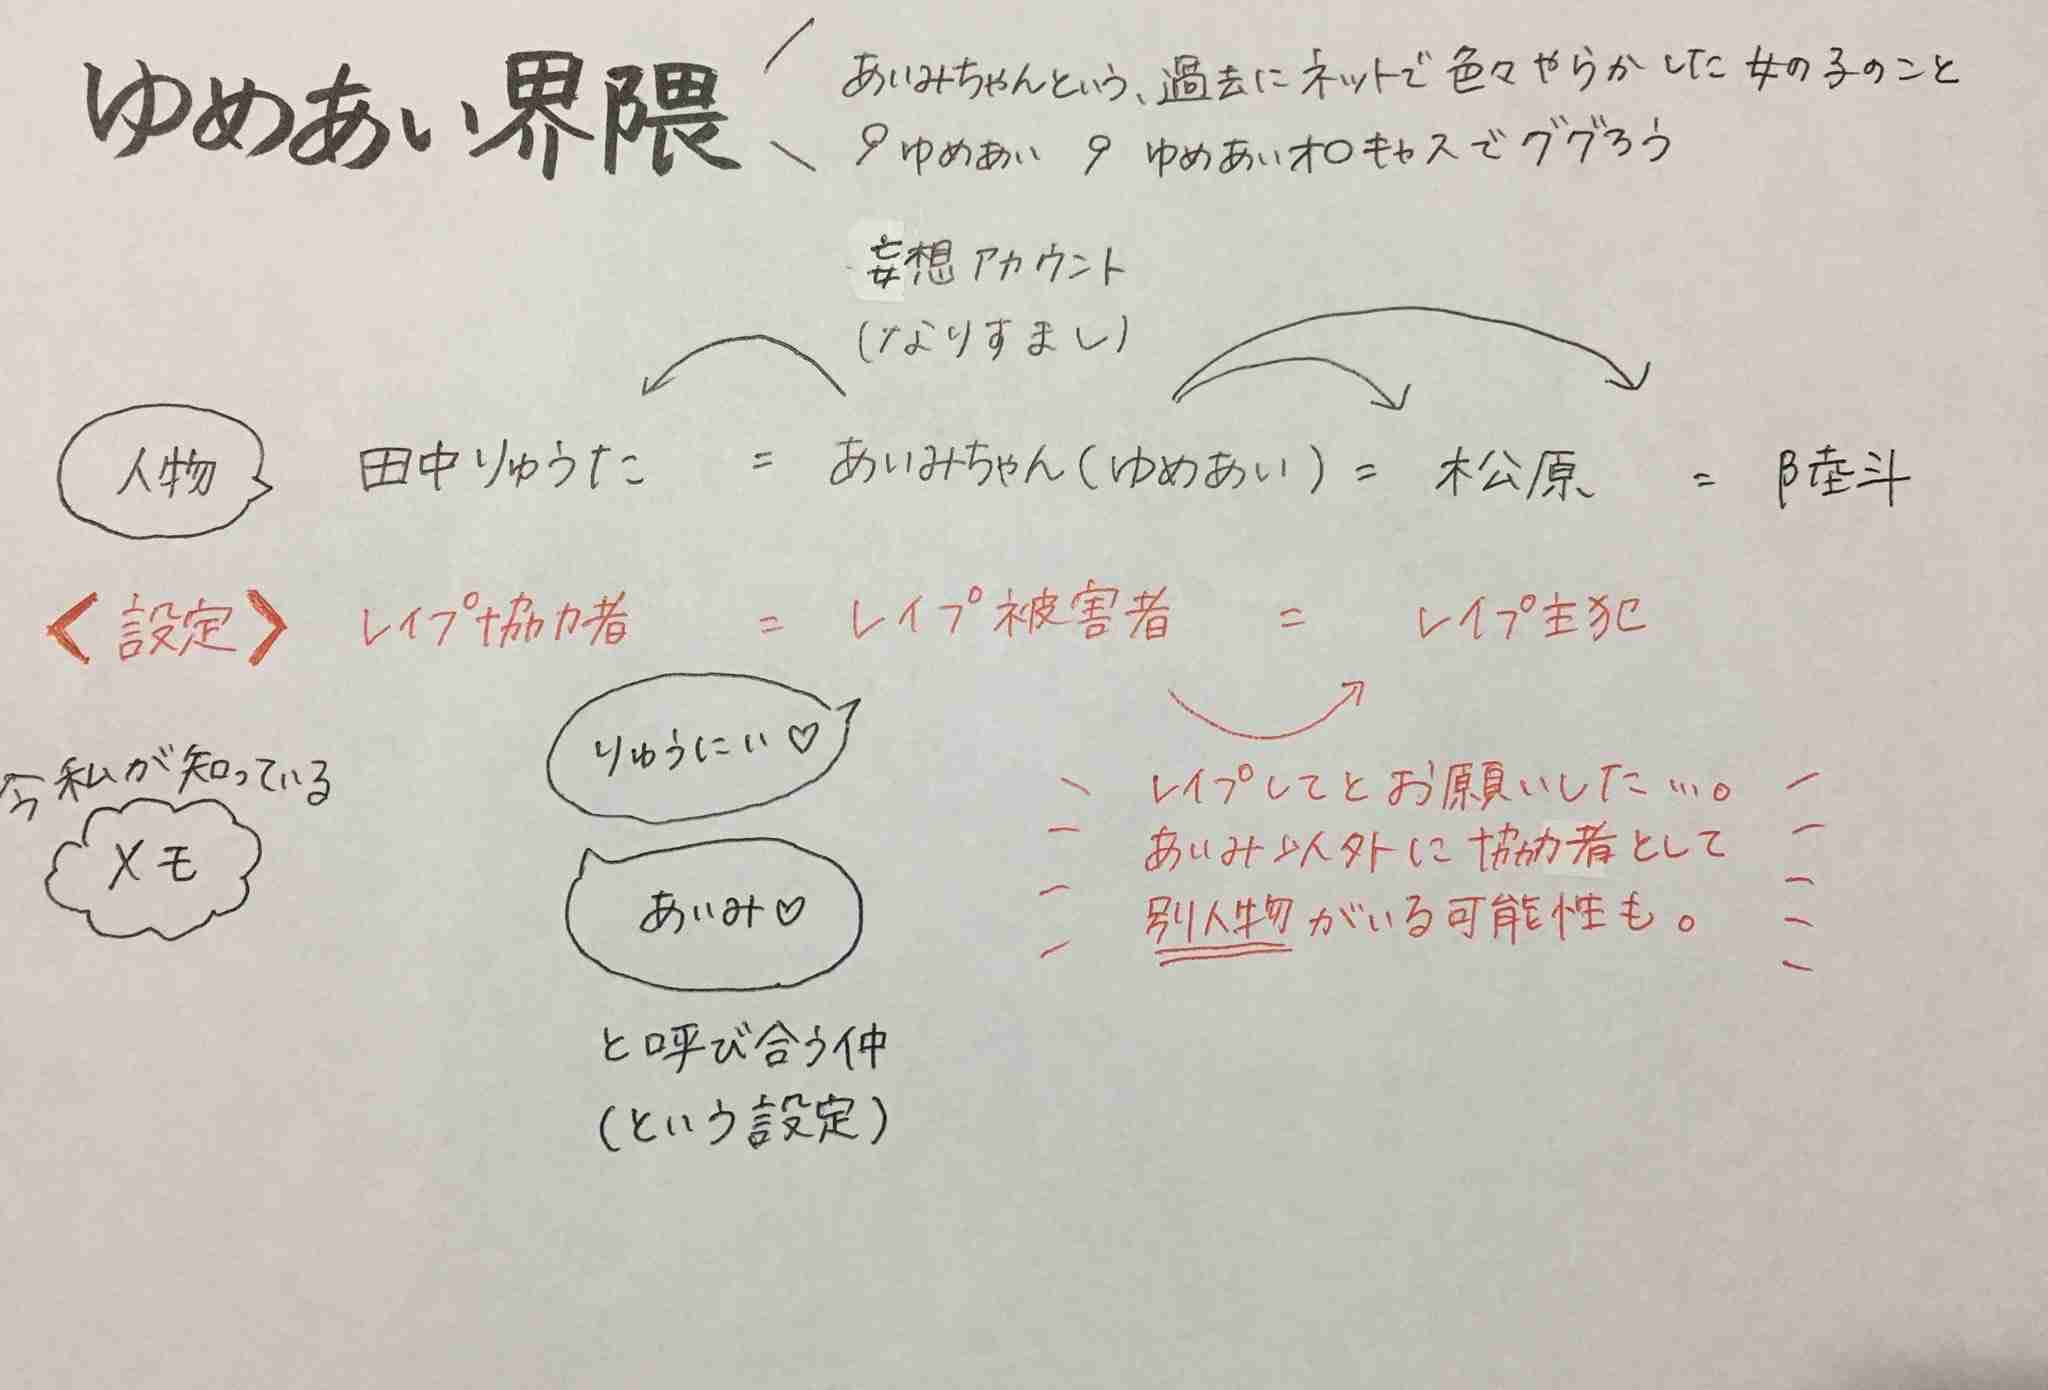 ゆめあい界隈
あいみちゃんという、過去にネットで色々やらかした女の子のこと
ゆめあい ゆめあいオロキャスでググろう
妄想アカウント
(なりすまし)
人物
田中りゅうた = あいみちゃん(ゆめあい) = 松原 = 陸斗
<設定> レイプ協力者 = レイプ被害者 = レイプ主犯
りゅうにい♡
あいみ♡
と呼び合う仲
(という設定)
今私が知っている
メモ
レイプしてとお願いした…。
あいみ以外に協力者として
別人物がいる可能性も。